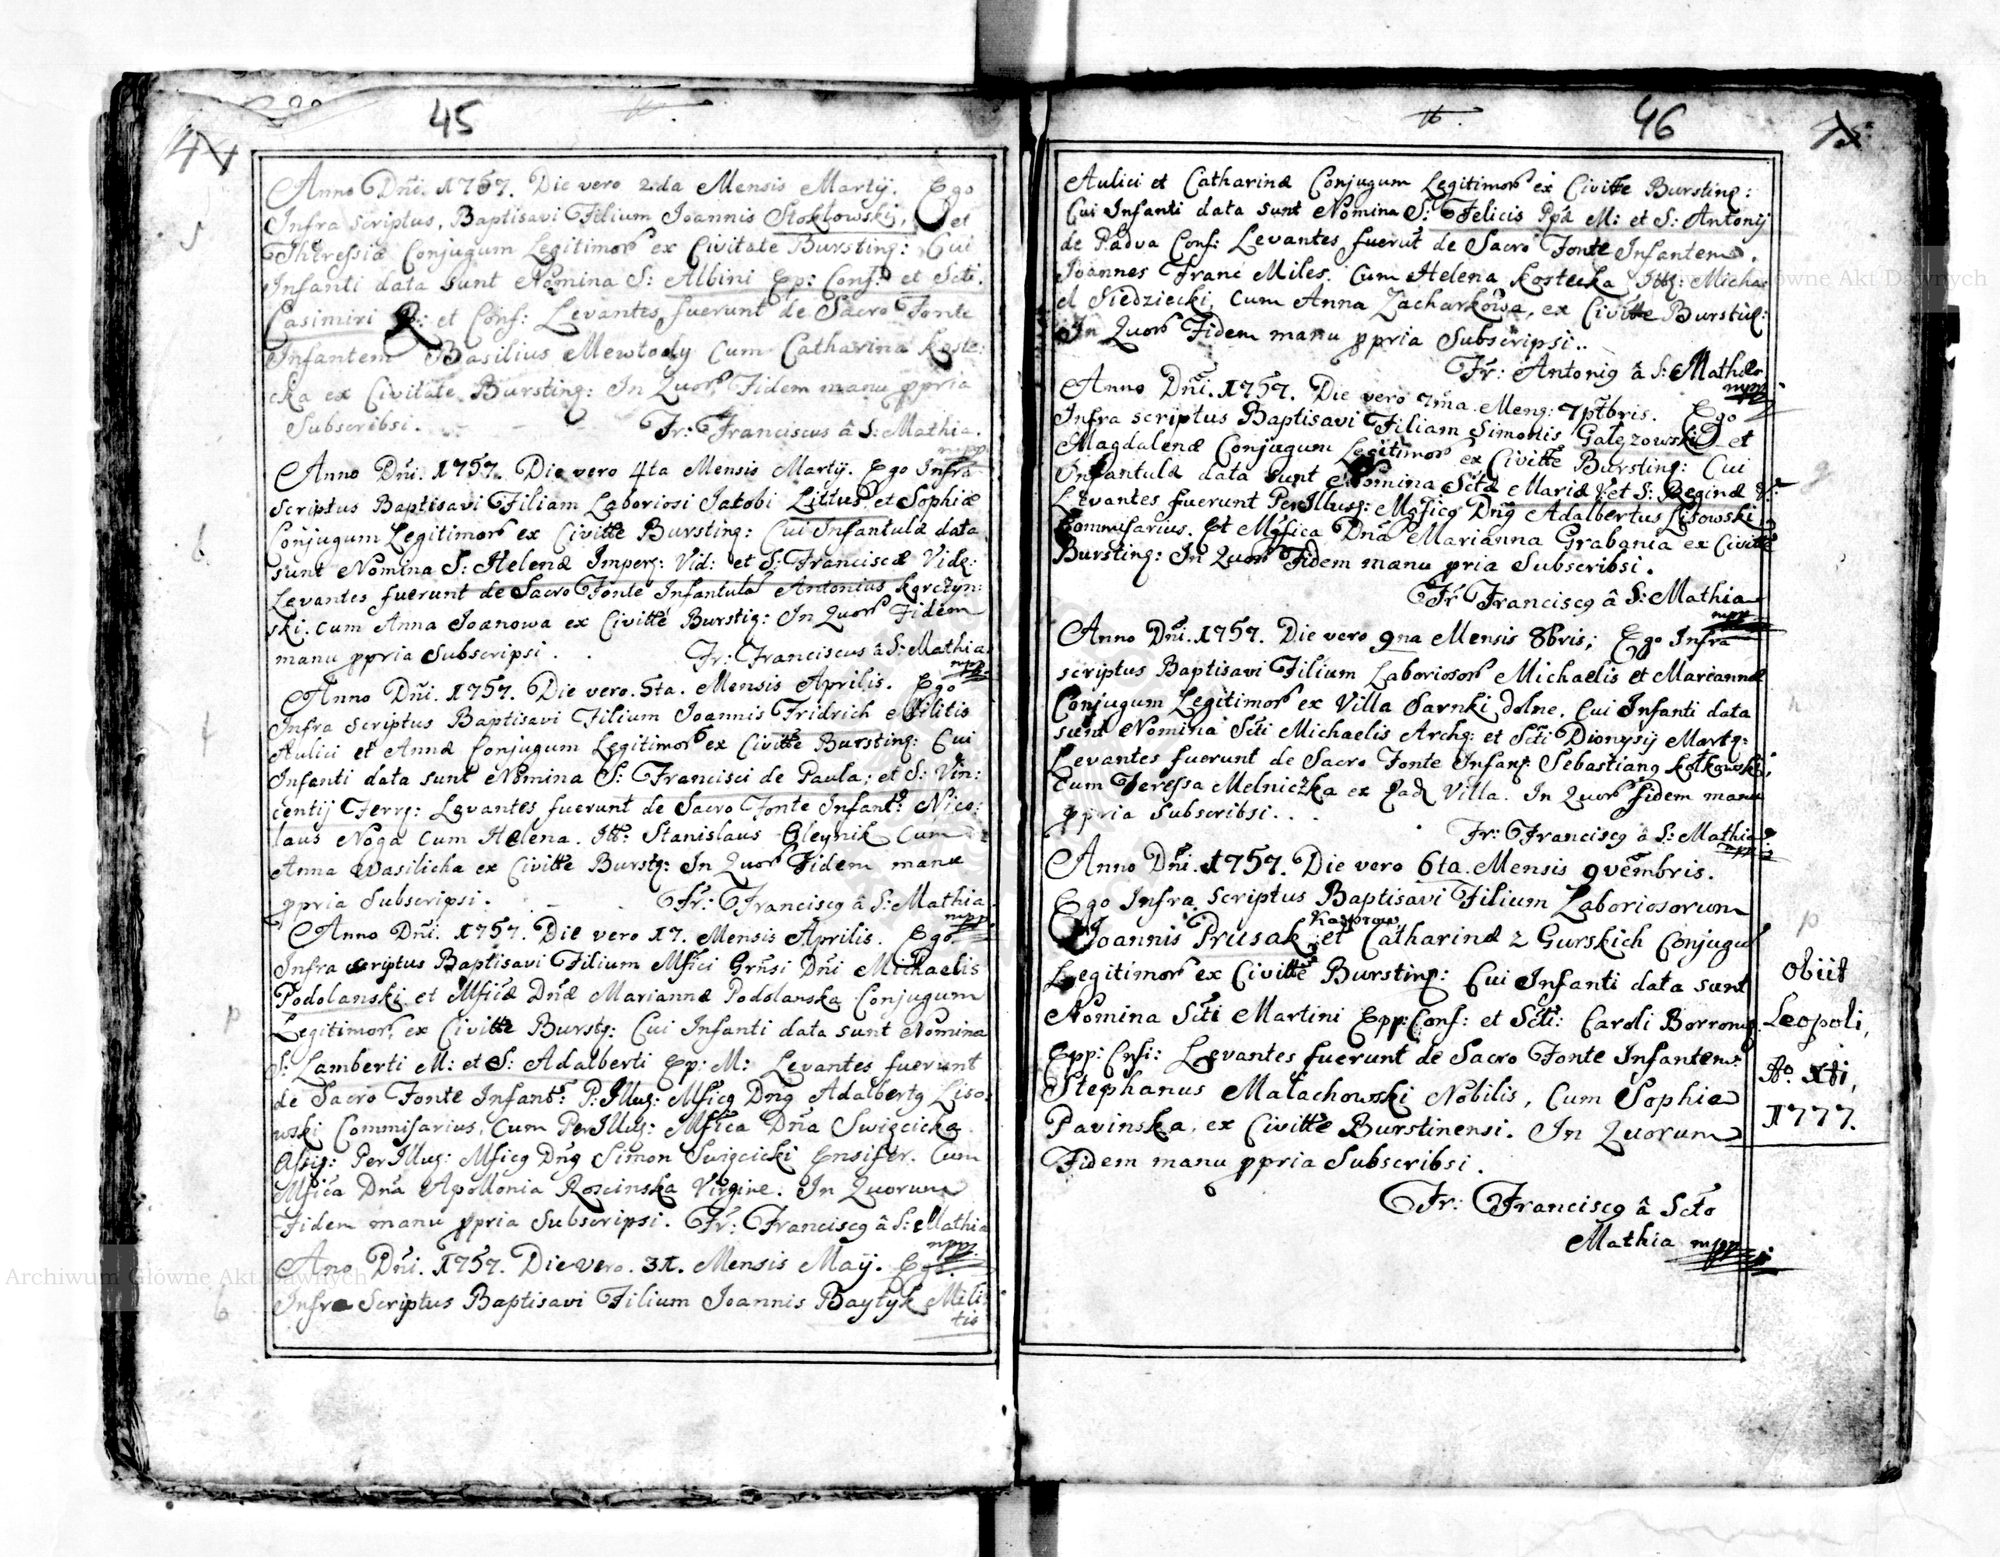 45
Anno Dñi. 1757. Die vero 2.da Mensis Martij. Ego
Infra scriptus, Baptisavi Filium Joannis Stoklowskij, et
Theressiæ Conjugum Legitimor̃ ex Civitate Bursting: Cui
Infanti data sunt Nomina S: Albini Ep: Conf: et Scti.
Casimiri R: et Conf: Levantes fuerunt de Sacro Fonte
Infantem Basilius Mewtody Cum Catharina Koste:
cka ex Civitate Bursting: In Quor̃ Fidem manu ppria
Subscribsi. Fr: Franciscus â S: Mathia.
mpp
Anno Dñi. 1757. Die vero 4ta Mensis Martij. Ego Infra
scriptus Baptisavi Filiam Laboriosi Jakobi Littus et Sophiæ
Conjugum Legitimor̃ ex Civitte Bursting: Cui Infantulæ data
sunt Nomina S: Helenæ Imperg: Vid: et S: Franciscæ Vidg:
Levantes fuerunt de Sacro Fonte Infantulã Antonius Korczyn:
ski. cum Anna Joanowa ex Civittẽ Burstig: In Quor̃ Fidem
manu ppria Subscripsi. Fr: Franciscus â S: Mathia
mpp.
Anno Dñi. 1757. Die vero. 5ta. Mensis Aprilis. Ego
Infra scriptus Baptisavi Filium Joannis Fridrich Militis
Aulici et Annæ Conjugum Legitimor̃ ex Civittẽ Bursting: Cui
Infanti data sunt Nomina S: Francisci de Paula; et S: Vin:
centij Ferrg: Levantes fuerunt de Sacro Fonte Infant: Nico:
laus Noga cum Helena. Itt: Stanislaus Oleynik Cum
Anna Wasilicha ex Civittẽ Burstg: In Quor̃ Fidem manu
ppria Subscripsi. Fr: Franciscg â S: Mathia
mpp
Anno Dñi. 1757. Die vero 17. Mensis Aprilis. Ego.
Infra scriptus Baptisavi Filium Mfici Grñsi Dñi Michaelis
Podolanski et Mficæ Dnæ Mariannæ Podolanska Conjugum
Legitimor̃ ex Civittẽ Burstg: Cui Infanti data sunt Nomina
S: Lamberti M: et S: Adalberti Ep: M: Levantes fuerunt
de Sacro Fonte Infant: P: Illug: Mficg Dng Adalbertg Liso:
wski Commisarius, Cum PerIllug: Mfica Dña Swigcicka
Assig: PerIllug: Mficg Dng Simon Swigcicki Ensifer. Cum
Mfica Dña Apollonia Roscinska Virgine. In Quorum
Fidem manu ppria Subscripsi. Fr: Franciscg â S: Mathia
mpp
Ano Dñi. 1757. Die vero. 31. Mensis Maij. Ego.
Infra Scriptus Baptisavi Filium Joannis Baytyk Mili
tis
46
Aulici et Catharinæ Conjugum Legitimor̃ ex Civittẽ Bursting:
Cui Infanti data sunt Nomina S: Felicis Ppæ M: et S: Antonij
de Padva Conf: Levantes fuerut de Sacro Fonte Infantem.
Joannes Franc Miles. Cum Helena Kostecka Itt: Micha
el Siedziecki, Cum Anna Zacharkowa, ex Civittẽ Burstig:
In Quor̃ Fidem manu ppria Subscripsi..
Fr: Antonig â S: Mathæo
mpp
Anno Dñi. 1757. Die vero 7ma Meng: 7ptbris. Ego
Infra scriptus Baptisavi Filiam Simonis Galęzowski et
Magdalenæ Conjugum Legitimor̃ ex Civittẽ Bursting: Cui
Infantulæ data sunt Nomina Sctæ Mariæ V et S: Reginæ V:
Levantes fuerunt PerIllusg: Mgficg Dng Adalbertus Lisowski
Commisarius. Et Mgfica Dña Marianna Grabania ex Civittẽ
Bursting: In Quor̃ Fidem manu pria Subscribsi.
Fr Franciscg â S: Mathia
mpp
Anno Dñi. 1757. Die vero 9na Mensis 8bris; Ego Infra
scriptus Baptisavi Filium Laboriosor̃ Michaelis et Mariannæ
Conjugum Legitimor̃ ex Villa Sarnki dolne. Cui Infanti data
sunt Nomina Scti Michaelis Archg: et Scti Dionysij Martg:
Levantes fuerunt de Sacro Fonte Infanf: Sebastiang Kolkowski,
Cum Teressa Melniczka ex Ead Villa. In Quor̃ fidem manu
ppria Subscribsi...
Fr: Franciscg â S: Mathia
mpp
Anno Dñi. 1757. Die vero 6ta. Mensis 9vẽmbris.
Ego Infra scriptus Baptisavi Filium Laboriosorum
Kasprow
Joannis Priesak et Catharinæ z Gurskich Conjugũ
Legitimor̃ ex Civittẽ Bursting: Cui Infanti data sunt
Nomina Scti Martini Epp: Conf: et Scti: Caroli Borromg.
Epp: Cnfi: Levantes fuerunt de Sacro Fonte Infantem:
Stephanus Małachowski Nobilis, Cum Sophia
Pavinska, ex Civittẽ Burstinensi. In Quorum
Fidem manu ppria Subscribsi.
Fr: Franciscg â Scto
Mathia mpp
obiit
Leopoli,
Ao. Xti,
1777.
Archiwum Główne Akt Dawnych